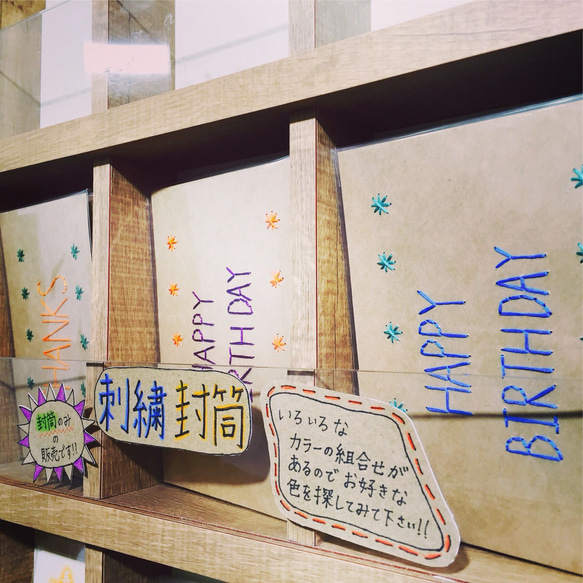 HANKS
HAPPY
BIRTHDAY
HAPPY
BIRTHDAY
刺繍封筒
封筒のみ
の
販売です!!
いろいろな
カラーの組合せが
あるのでお好きな
色を探してみて下さい!!